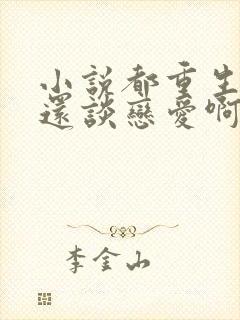 小説都重生
還談戀愛啊
李金山